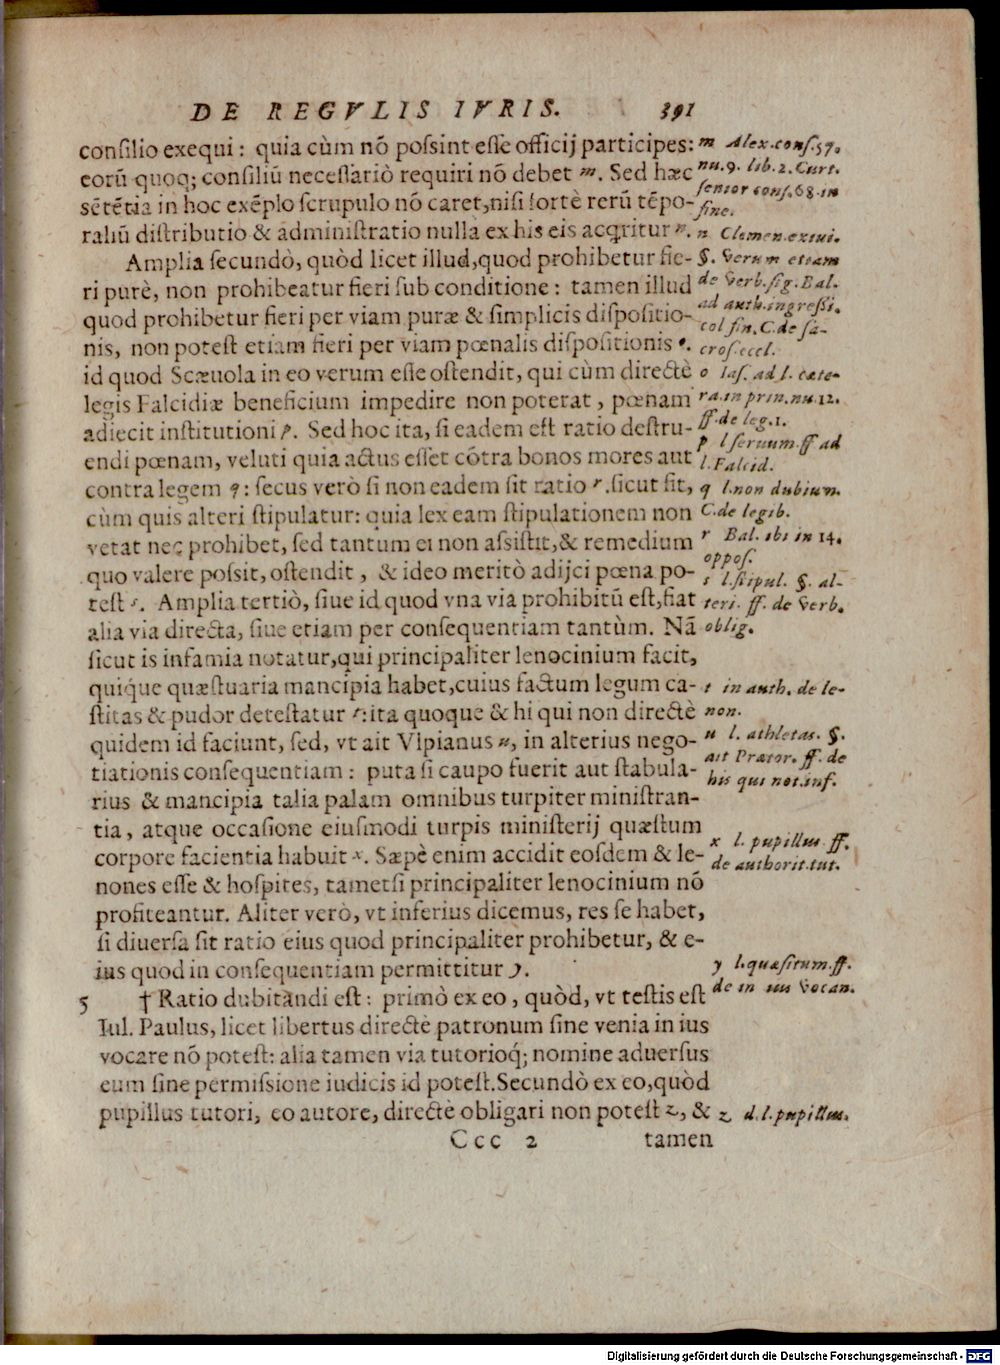 DE REGVLIS IVRIS. 391
consilio exequi: quia cùm nõ possint esse officij participes:
eorũ quoq; consiliũ necessariò requiri nõ debet m. Sed hæc
sẽtẽtia in hoc exẽplo scrupulo nõ caret, nisi fortè rerũ tẽpo-
raliũ distributio & administratio nulla ex his eis acqritur n.
Amplia secundò, quòd licet illud, quod prohibetur fie-
ri purè, non prohibeatur fieri sub conditione: tamen illud
quod prohibetur fieri per viam puræ & simplicis dispositio-
nis, non potest etiam fieri per viam pœnalis dispositionis o.
id quod Scæuola in eo verum esse ostendit, qui cùm directè
legis Falcidiæ beneficium impedire non poterat, pœnam
adiecit institutioni p. Sed hoc ita, si eadem est ratio destru-
endi pœnam, veluti quia actus esset cõtra bonos mores aut
contra legem q: secus verò si non eadem sit ratio r. sicut sit,
cùm quis alteri stipulatur: quia lex eam stipulationem non
vetat nec prohibet, sed tantum ei non assistit, & remedium
quo valere possit, ostendit, & ideo meritò adijci pœna po-
test s. Amplia tertiò, siue id quod vna via prohibitũ est, fiat
alia via directa, siue etiam per consequentiam tantùm. Nã
sicut is infamia notatur, qui principaliter lenocinium facit,
quíque quæstuaria mancipia habet, cuius factum legum ca-
stitas & pudor detestatur t: ita quoque & hi qui non directè
quidem id faciunt, sed, vt ait Vlpianus u, in alterius nego-
tiationis consequentiam: puta si caupo fuerit aut stabula-
rius & mancipia talia palam omnibus turpiter ministran-
tia, atque occasione eiusmodi turpis ministerij quæstum
corpore facientia habuit x. Sæpè enim accidit eosdem & le-
nones esse & hospites, tametsi principaliter lenocinium nõ
profiteantur. Aliter verò, vt inferius dicemus, res se habet,
si diuersa sit ratio eius quod principaliter prohibetur, & e-
ius quod in consequentiam permittitur y.
5 † Ratio dubitandi est: primò ex eo, quòd, vt testis est
Iul. Paulus, licet libertus directè patronum sine venia in ius
vocare nõ potest: alia tamen via tutorioq́; nomine aduersus
eum sine permissione iudicis id potest. Secundò ex eo, quòd
pupillus tutori, eo autore, directè obligari non potest z, &
Ccc 2 tamen
m Alex. cons. 57.
nu. 9. lib. 2. Curt.
senior cons. 68. in
fine.
n Clemen. exiui.
§. Verum etiam
de Verb. sig. Bal.
ad auth. ingressi.
col fin. C. de sa-
cros. eccl.
o Ias. ad l. cate-
ra. in prin. nu. 12.
ff. de leg. 1.
p l seruum. ff ad
l. Falcid.
q l. non dubium.
C. de legib.
r Bal. ibi in 14.
oppos.
s l. stipul. §. al-
teri. ff. de Verb.
oblig.
t in auth. de le-
non.
u l. athletas. §.
ait Prætor. ff. de
his qui not. inf.
x l. pupillus ff.
de authorit. tut.
y l. quæsitum. ff.
de in ius Vocan.
z d. l. pupillus.
Digitalisierung gefördert durch die Deutsche Forschungsgemeinschaft - DFG